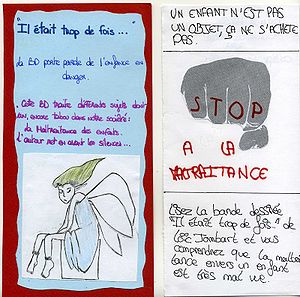 "Il était trop de fois..."
La BD porte parole de l'enfance en
danger.
Cette BD traite différents sujets dont
un, encore tabou dans notre société :
la Maltraitance des enfants.
L'auteur met en avant les silences...
UN ENFANT N'EST PAS
UN OBJET, ÇA NE S'ACHETE
PAS.
STOP
A LA
MALTRAITANCE
Lisez la bande dessinée
"Il était trop de fois.." de
Jombart et vous
comprendrez que la maltrai
tance envers un enfant
est très mal vue.